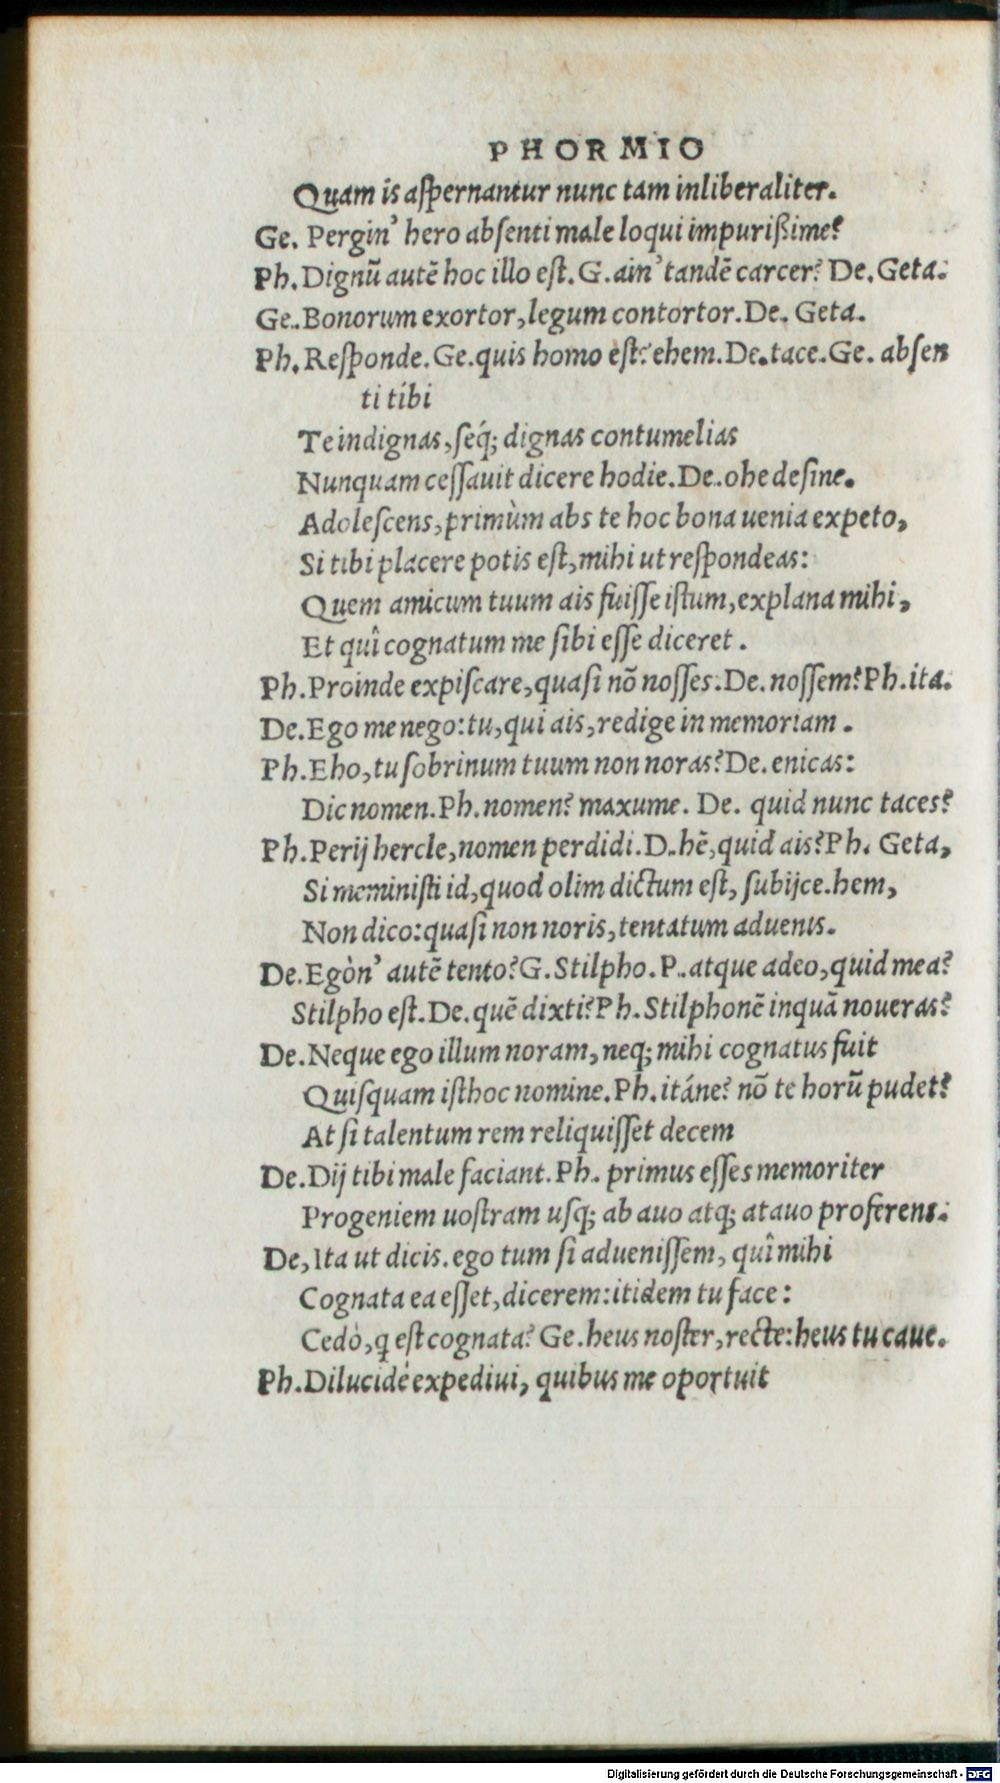 PHORMIO
Quam is aſpernantur nunc tam inliberaliter.
Ge. Pergin' hero abſenti male loqui impurißime?
Ph. Dignū autē hoc illo eſt. G. ain' tandē carcer? De. Geta.
Ge. Bonorum exortor, legum contortor. De. Geta.
Ph. Reſponde. Ge. quis homo eſt? ehem. De. tace. Ge. abſen
ti tibi
Te indignas, ſeq́; dignas contumelias
Nunquam ceſſauit dicere hodie. De. ohe deſine.
Adoleſcens, primùm abs te hoc bona uenia expeto,
Si tibi placere potis eſt, mihi ut reſpondeas:
Quem amicum tuum ais fuiſſe iſtum, explana mihi,
Et quî cognatum me ſibi eſſe diceret.
Ph. Proinde expiſcare, quaſi nō noſſes. De. noſſem? Ph. ita.
De. Ego me nego: tu, qui ais, redige in memoriam.
Ph. Eho, tu ſobrinum tuum non noras? De. enicas:
Dic nomen. Ph. nomen? maxume. De. quid nunc taces?
Ph. Perij hercle, nomen perdidi. D. hē, quid ais? Ph. Geta,
Si meminiſti id, quod olim dictum eſt, ſubijce. hem,
Non dico: quaſi non noris, tentatum aduenis.
De. Egòn' autē tento? G. Stilpho. P. atque adeo, quid mea?
Stilpho eſt. De. quē dixti? Ph. Stilphonē inquā noueras?
De. Neque ego illum noram, neq; mihi cognatus fuit
Quiſquam iſthoc nomine. Ph. itáne? nō te horū pudet?
At ſi talentum rem reliquiſſet decem
De. Dij tibi male faciant. Ph. primus eſſes memoriter
Progeniem uoſtram uſq; ab auo atq; atauo proferens.
De, Ita ut dicis. ego tum ſi adueniſſem, quî mihi
Cognata ea eſſet, dicerem: itidem tu face:
Cedò, q eſt cognata? Ge. heus noſter, recte: heus tu caue.
Ph. Dilucidè expediui, quibus me oportuit
Digitalisierung gefördert durch die Deutsche Forschungsgemeinschaft - DFG